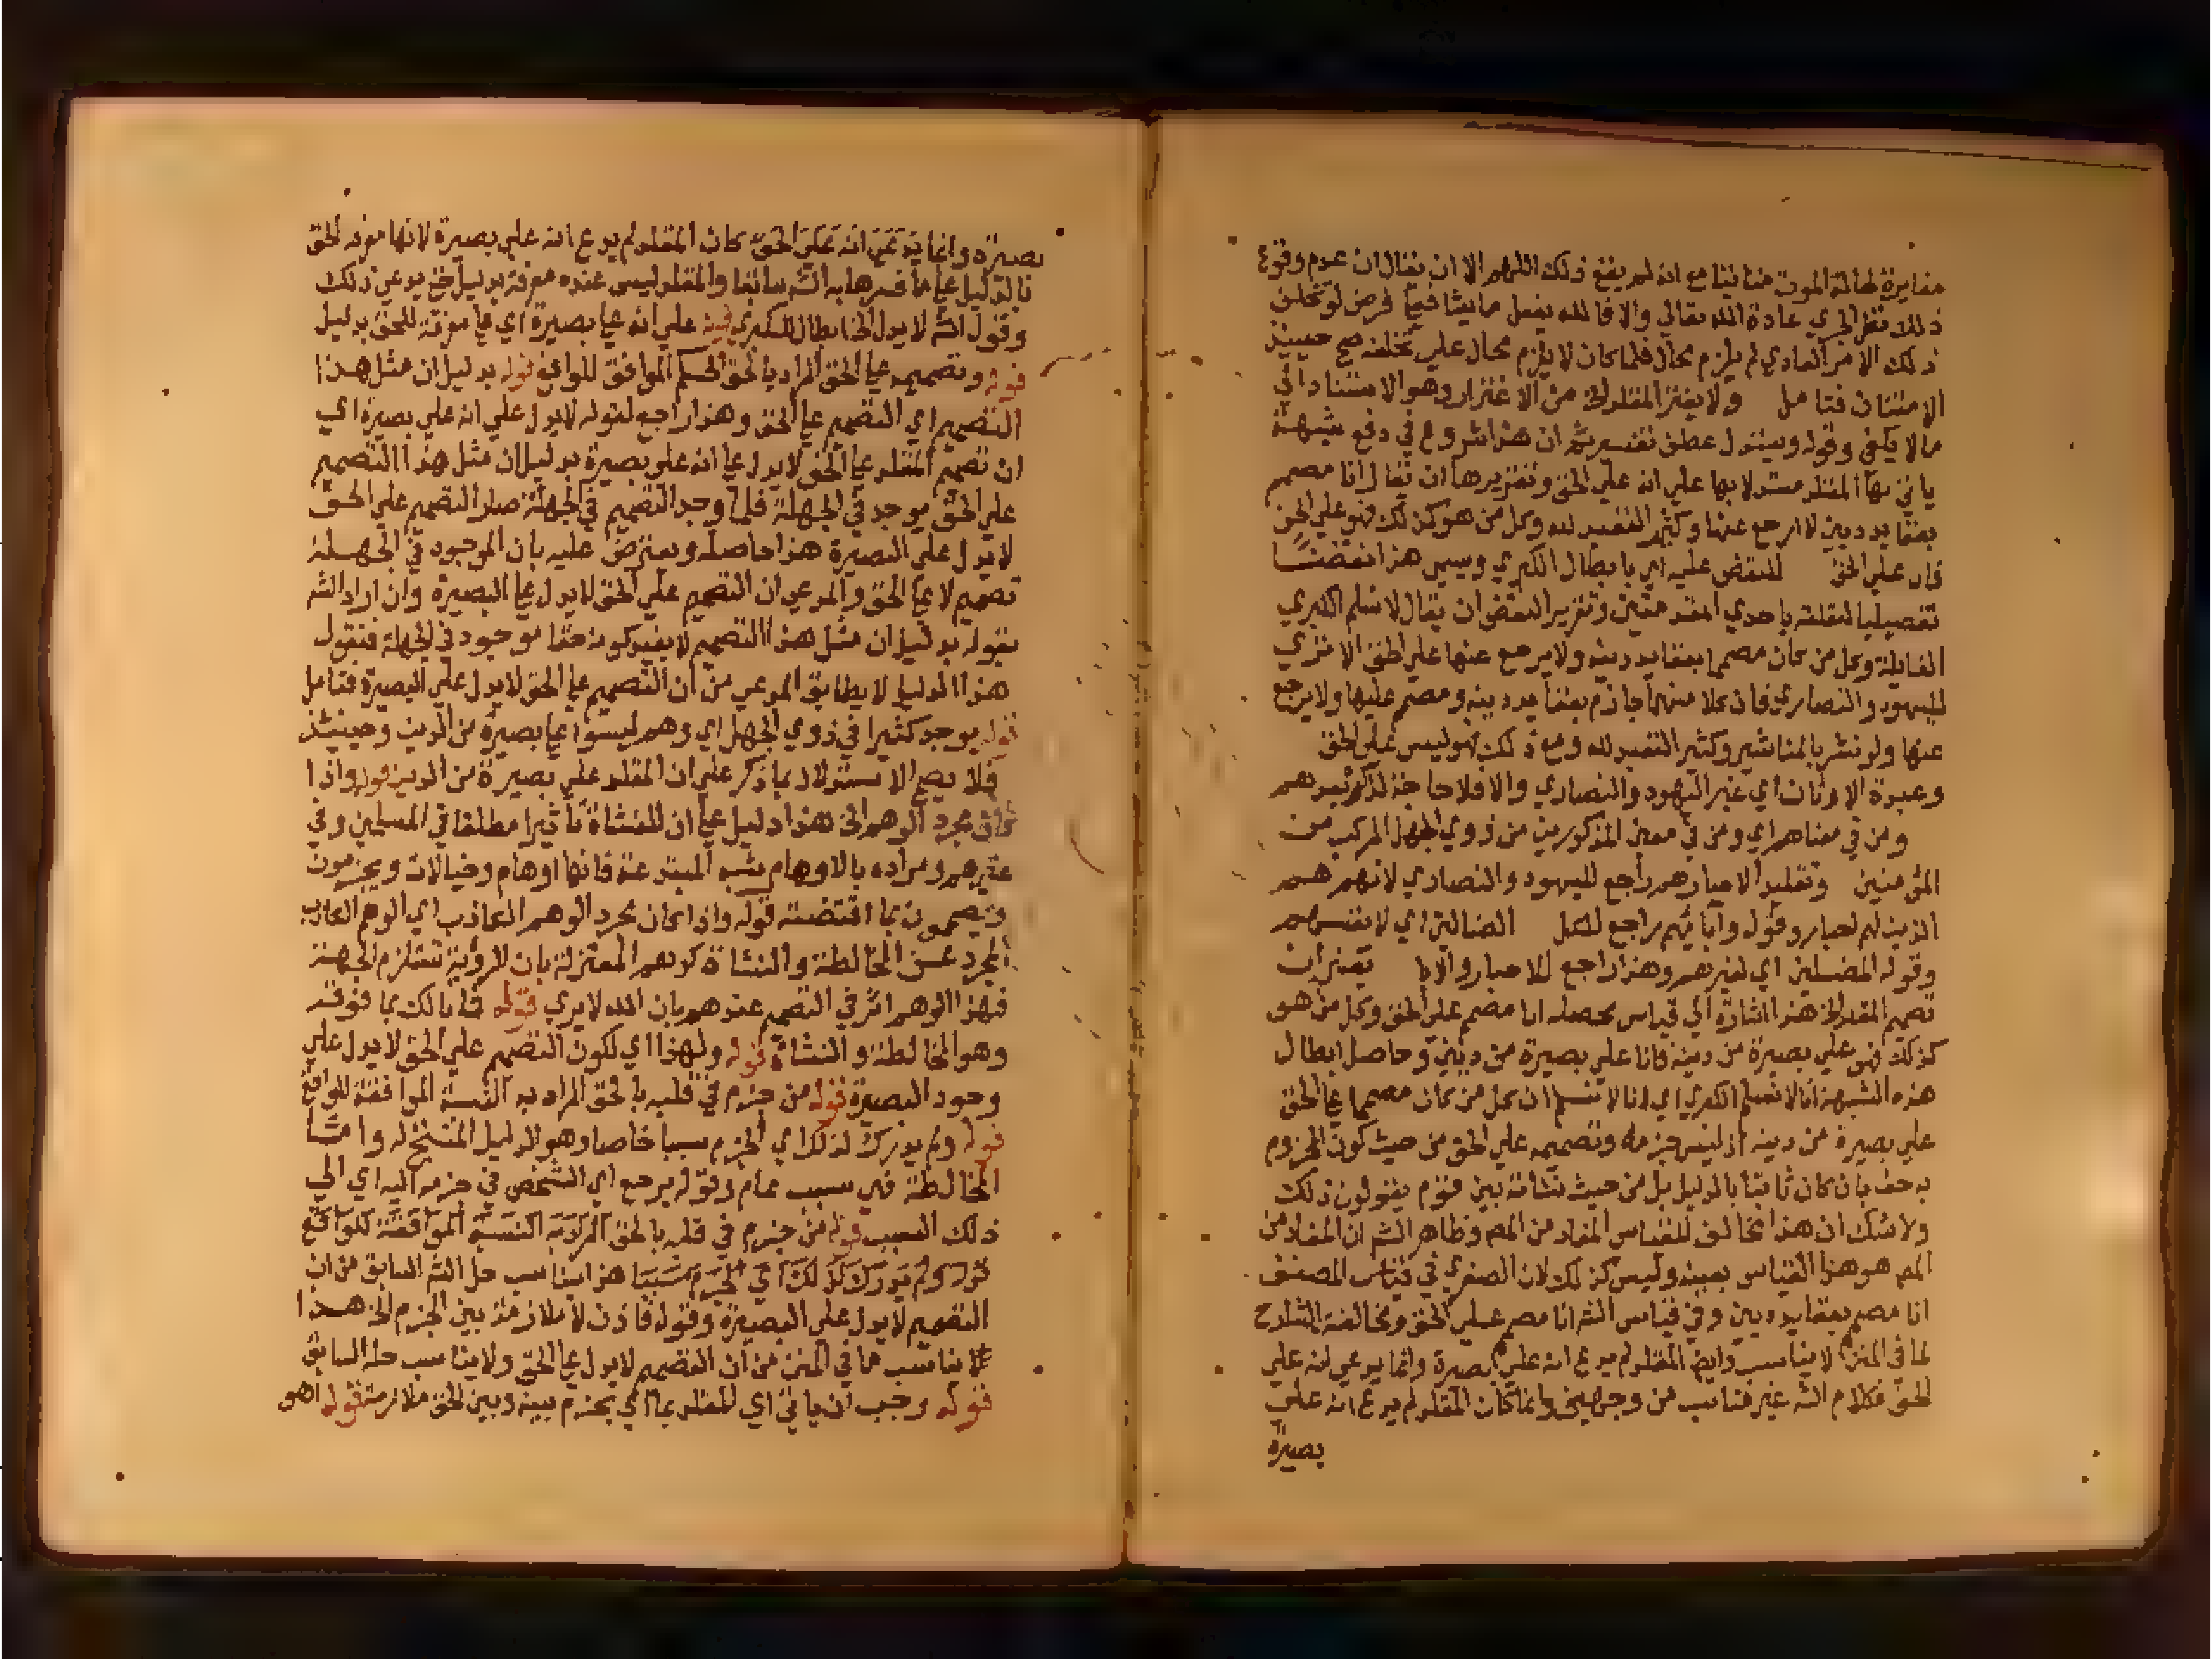 مغايرة لحالة الموت منافيا مع انه لم يقع ذلك اللهم الا ان يقال ان عدم وقوع
ذلك نظر الجري عادة الله تعالي والا فالله يفعل ما يشا فيها فرض لو تخلف
ذلك الامر العادي لم يلزم محال فلما كان لا يلزم محال علي تخلفه صح حينيذ
الامتنان فتامل ولا يغتر المقلد الخ من الاغترار وهو الاستناد الي
ما لا يكفي وقوله ويستدل عطف تفسير ثم ان هذا شروع في دفع شبهة
ياتي بها المقلد مستدلا بها علي انه علي الحق وتقريرها ان يقال انا مصمم
بعقايد ديني لا ارجع عنها وكثير التعبد لله وكل من هو كذلك فهو علي الحق
فان علي الحق للنقض عليه اي بابطال الكبري ويسمي هذا نقضا
تفصيليا لتعلقه باحدي المقدمتين وتقرير النقض ان يقال لا نسلم الكبري
القايلة وكل من كان مصمما بعقايد دينه ولا يرجع عنها علي الحق الا تري
لليهود والنصاري فان كلا منهما جازم بعقايد دينه ومصمم عليها ولا يرجع
عنها ولو نشر بالمناشير وكثير التعبد لله ومع ذلك فهو ليس علي الحق
وعبدة الاوثان اي غير اليهود والنصاري والا فلا حاجة لذكره بعدهم
ومن في معناهم اي ومن في معني المذكورين من ذوي الجهل المركب من
المؤمنين وتقليد الاحبارهم راجع لليهود والنصاري لانهم هم
الذين لهم احبار وقوله وابايهم راجع للكل الضالين اي لانفسهم
وقوله المضلين اي لغيرهم وهذا راجع للاحبار والابا تعتبر ان
تصميم المقلد الخ هذا اشارة الي قياس محصله انا مصمم علي الحق وكل من هو
كذلك فهو علي بصيرة من دينه فانا علي بصيرة من ديني وحاصل ابطال
هذه الشبهة انا لا نسلم الكبري اي انا لا نسلم ان كل من كان مصمما علي الحق
علي بصيرة من دينه اذ ليس جزمه وتصميمه علي الحق من حيث كون المجزوم
به حقا بان كان ثابتا بالدليل بل من حيث نشاته بين قوم يقولون ذلك
ولا شك ان هذا مخالف للقياس المفاد من المص وظاهر الشم ان المفاد من
المص هو هذا القياس بعينه وليس كذلك لان الصغري في قياس المصنف
انا مصمم بعقايد ديني وفي قياس الشم انا مصمم علي الحق ومخالفة الشارح
لما في المتن لا يناسب وايضا المقلد لم يدع انه علي بصيرة وانما يدعي انه علي
الحق فكلام الشه غير مناسب من وجهين وانما كان المقلد لم يدع انه علي
بصيرة
بصيرة وانما يدعي انه علي الحق كان المقلد لم يدع انه علي بصيرة لانها معرفه الحق
بالدليل علي ما فسرها به الشم سابقا والمقلد ليس عنده معرفة بدليل حتي يدعي ذلك
وقول الشم لا يدل الخ ابطال للكبري قوله علي انه علي بصيرة اي علي معرفة للحق بدليل
قوله وتصميمه علي الحق المراد بالحق الحكم الموافق للواقع قوله بدليل ان مثل هذا
التصميم اي التصميم علي الحق وهذا راجع لقوله لا يدل علي انه علي بصيرة اي
ان تصميم المقلد علي الحق لا يدل علي انه علي بصيرة بدليل ان مثل هذا التصميم
علي الحق يوجد في الجهلة فلما وجد التصميم في الجهلة صار التصميم علي الحق
لا يدل علي البصيرة هذا حاصله ويعترض عليه بان الموجود في الجهلة
تصميم لا علي الحق والمدعي ان التصميم علي الحق لا يدل علي البصيرة وان اراد الشم
بقوله بدليل ان مثل هذا التصميم لا بقيد كونه حقا موجود في الجهلة فنقول
هذا الدليل لا يطابق المدعي من ان التصميم علي الحق لا يدل علي البصيرة فتامل
قوله يوجد كثيرا في ذوي الجهل اي وهم ليسوا علي بصيرة من الدين وحينيذ
فلا يصح الاستدلال بما ذكر علي ان المقلد علي بصيرة من الدين قوله واذا
كان مجرد الوهم الخ هذا دليل علي ان للنشاة تاثيرا مطلقا في المسلمين وفي
غيرهم ومراده بالاوهام شبه المبتدعة فانها اوهام وخيالات ويجزمون
ويصممون بما اقتضته قوله واذا كان مجرد الوهم الكاذب اي الوهم الكاذب
المجرد عن المخالطة والنشاة كوهم المعتزلة بان الرؤية تستلزم الجهة
فهذا الوهم اثر في التصميم عندهم بان الله لا يري قوله فما بالك بما فوقه
وهو المخالطة والنشاة قوله ولهذا اي لكون التصميم علي الحق لا يدل علي
وجود البصيرة قوله من جزم في قلبه بالحق المراد به النسبة الموافقة للواقع
قوله ولم يدرك لذلك اي الجزم سببا خاصا وهو الدليل المنتج له واما
المخالطة فهي سبب عام وقوله يرجع اي الشخص في جزمه اليه اي الي
ذلك السبب قوله من جزم في قلبه بالحق المراد به النسبة الموافقة للواقع
قوله ولم يدرك كذلك اي الجزم سببا هذا يناسب حل الشم السابق من ان
التصميم لا يدل علي البصيرة وقوله فاذن لا ملازمة بين الجزم الخ هذا
لا يناسب ما في المتن من ان التصميم لا يدل علي الحق ولا يناسب حله السابق
قوله وجب ان ياتي اي للمقلد بما اي بجزم بينه وبين الحق ملازمة قوله اهو